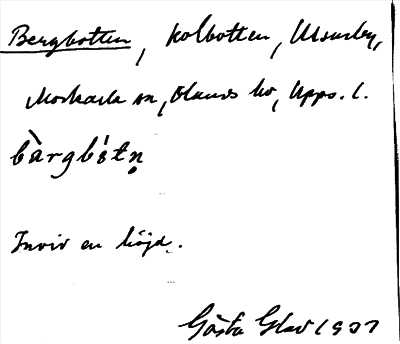 Bergbotten, kolbotten, Ålsunda,
Morkarla sn, Olands hd, Upps. l.
bàrgbótn̥
Invid en höjd.
Gösta Glad 1937